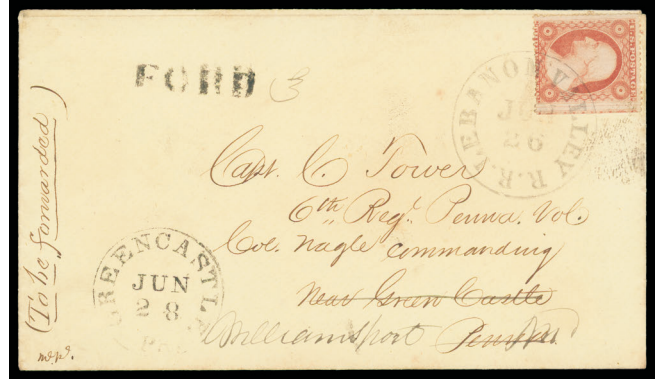 FORD 3
LEBANON VALLEY R.R.
JUN
26
Capt. C. Tower
6th Regt. Penna. Vol.
Col. Nagle commanding
Near Green Castle
Williamsport
Penna
(To be forwarded)
GREENCASTLE
JUN
28
Pa.